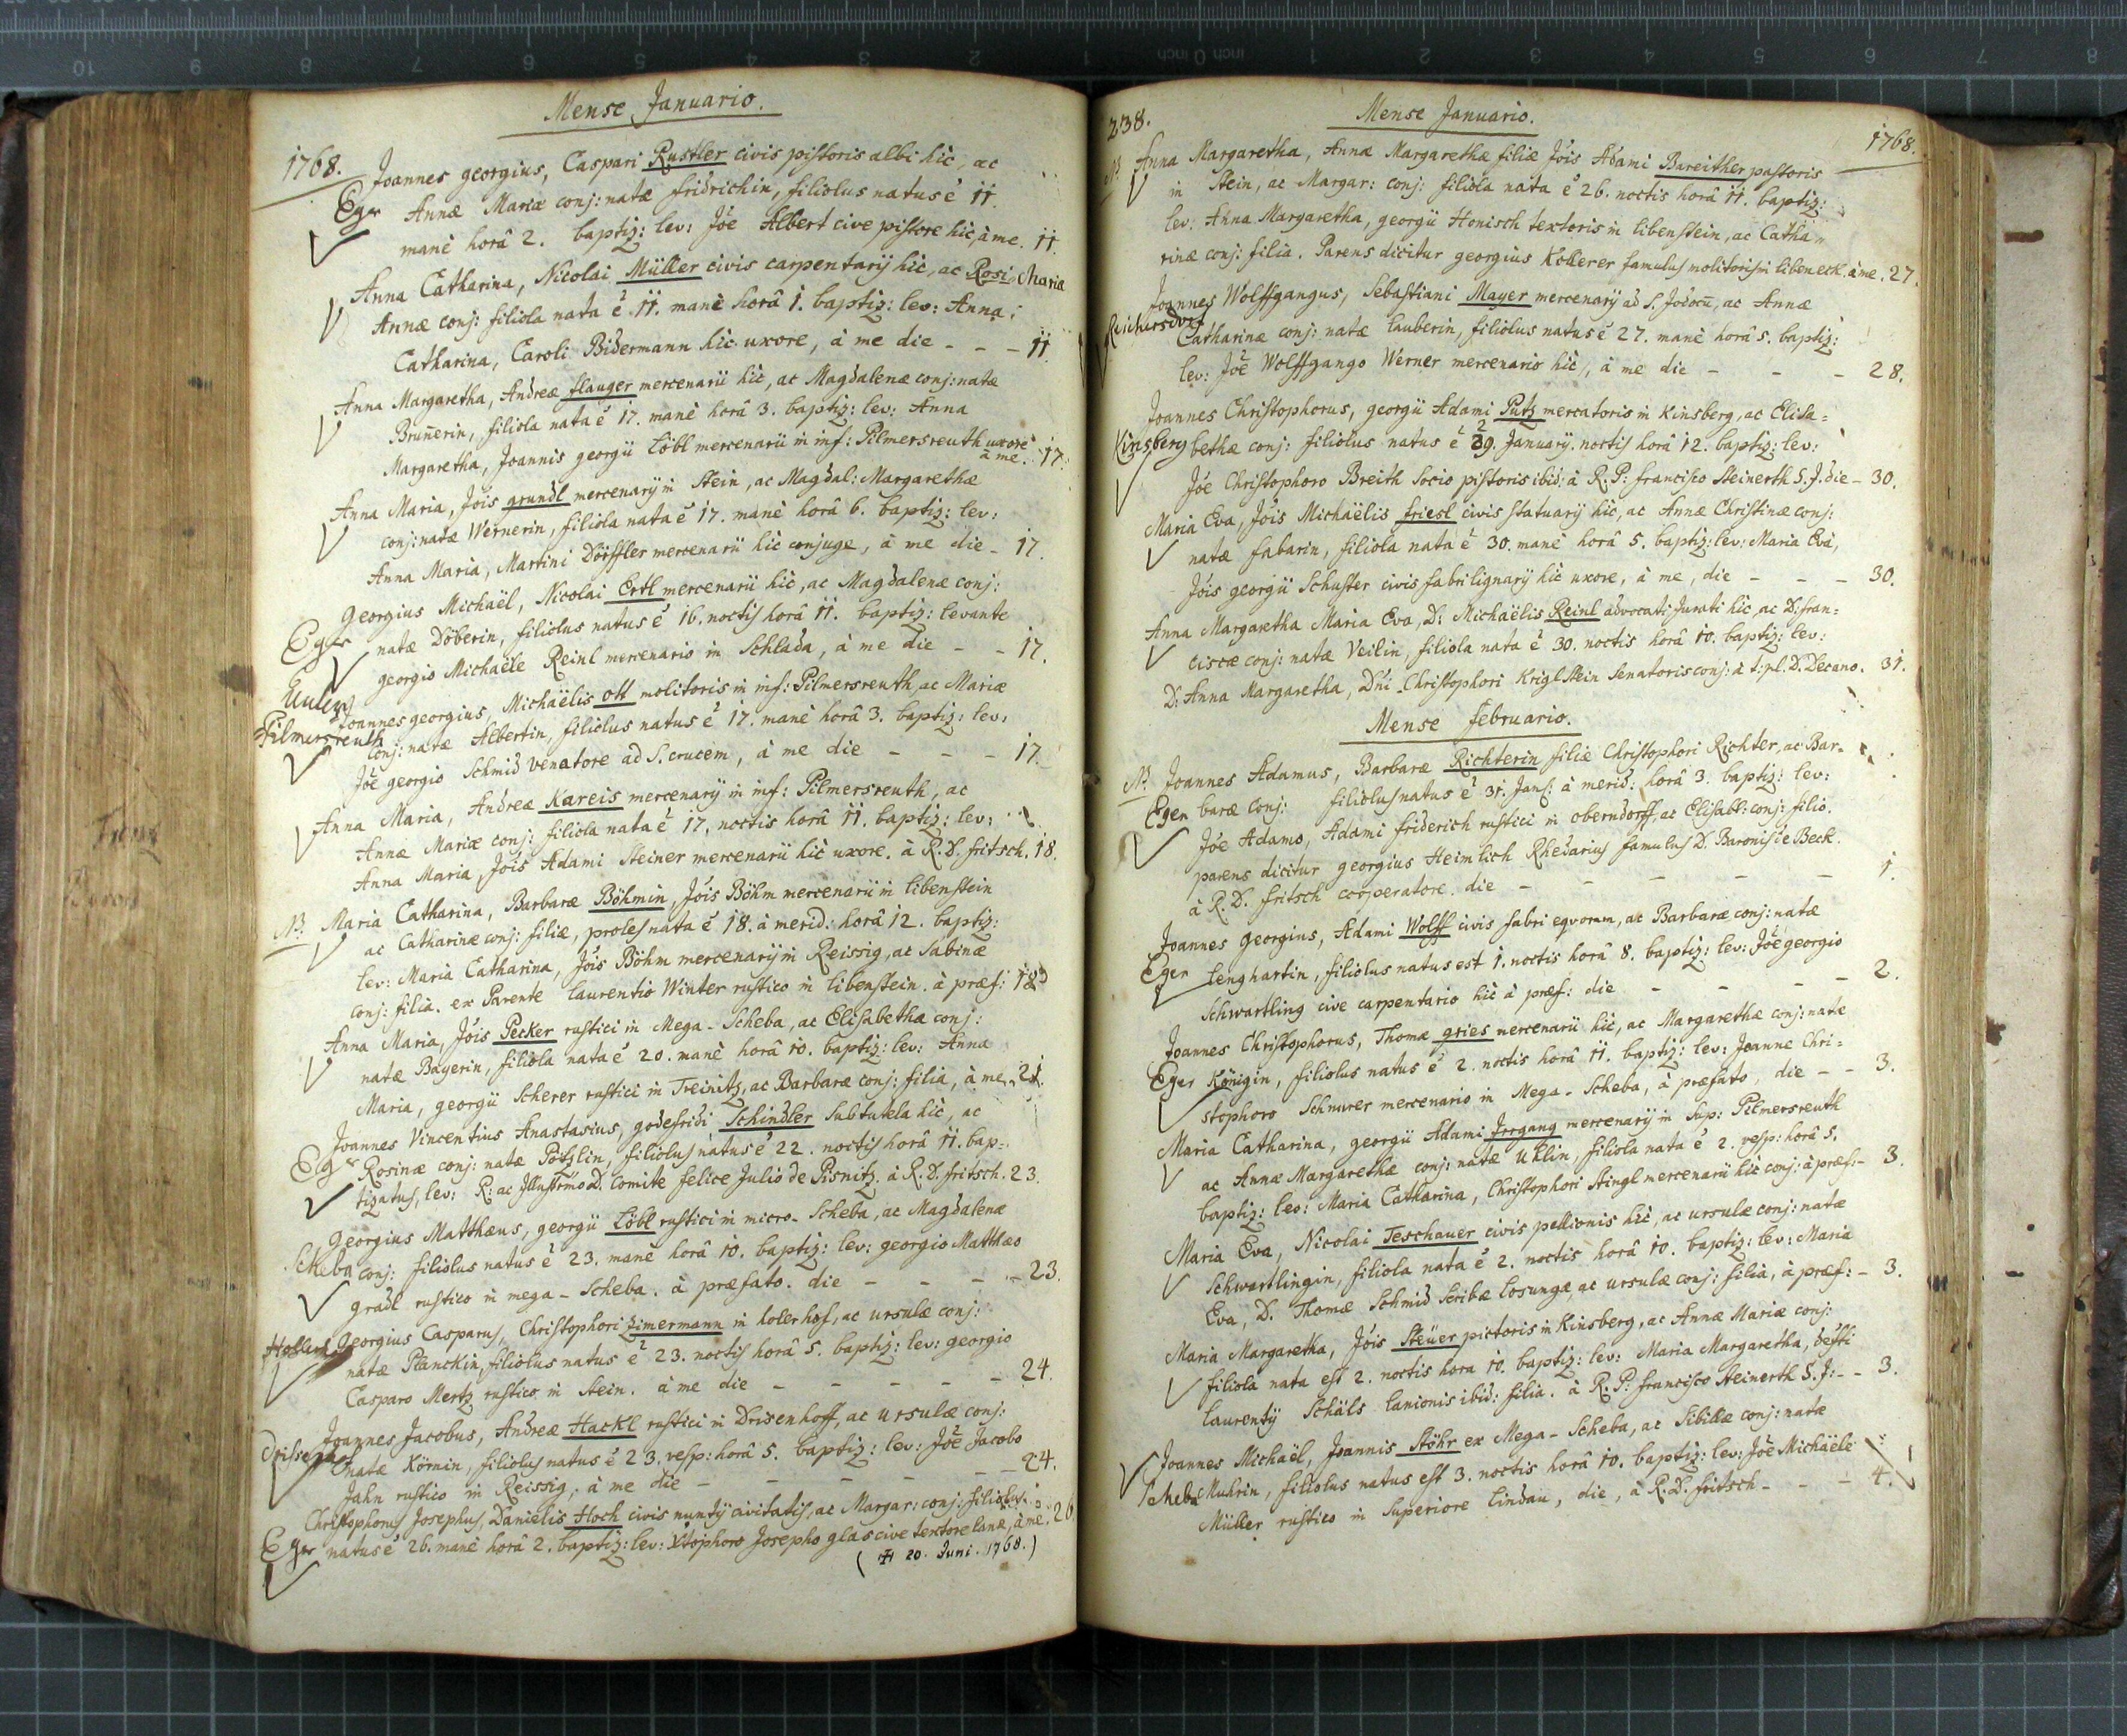 Mense Januario.
1768. Joannes georgius, Caspari Rustler civis pistoris albi hic, ac
Eger Annæ Mariæ conj: natæ fridrichin, filiolus natus ẽ 11.
manè horâ 2. baptiz: lev: Jõe Albert cive pistore hic, à me. 11.
Anna Catharina, Nicolai Müller civis carpentarÿ hic, ac Rosi Maria
Annæ conj: filiola nata ẽ 11. manè horâ 1. baptiz: lev: Anna
Catharina, Caroli Bidermann hic uxore, à me die - - - 11.
Anna Margaretha, Andreæ flauger mercenarii hic, ac Magdalenæ conj: natæ
Brun̄erin, filiola nata ẽ 17. manè horâ 3. baptiz: lev: Anna
Margaretha, Joannis georgii Löbl mercenarii in inf: Pilmersreuth uxore
à me. 17.
Anna Maria, Jõis grundl mercenarÿ in Stein, ac Magdal: Margarethæ
conj: natæ Wernerin, filiola nata ẽ 17. manè horâ 6. baptiz: lev:
Anna Maria, Martini Dörffler mercenarii hic conjuge, à me die - 17.
Georgius Michaël, Nicolai Ertl mercenarii hic, ac Magdalenæ conj:
Eger natæ Döberin, filiolus natus ẽ 16. noctis horâ 11. baptiz: levante
georgio Michaële Reinl mercenario in Schlada, à me die - - 17.
Unter
Pilmersreuth
Joannes georgius, Michaëlis ott molitoris in inf: Pilmersreuth, ac Mariæ
conj: natæ Albertin, filiolus natus ẽ 17. manè horâ 3. baptiz: lev:
Jõe georgio Schmid venatore ad S. crucem, à me die - - - 17.
Anna Maria, Andreæ Kareis mercenarÿ in inf: Pilmersreuth, ac
Annæ Mariæ conj: filiola nata ẽ 17. noctis horâ 11. baptiz: lev:
Anna Maria, Jõis Adami Steiner mercenarii hic uxore. à R. D. fritsch. 18.
NB. Maria Catharina, Barbaræ Böhmin, Jõis Böhm mercenarii in libenstein
ac Catharinæ conj: filiæ, proles nata ẽ 18. à merid: horâ 12. baptiz:
lev: Maria Catharina, Jõis Böhm mercenarÿ in Reissig, ac Sabinæ
conj: filia. ex Parente laurentio Winter rustico in libenstein. à præf: 18
Anna Maria, Jõis Pecker rustici in Mega-Scheba, ac Elisabetha conj:
natæ Bayerin, filiola nata ẽ 20. manè horâ 10. baptiz: lev: Anna
Maria, georgii Scherer rustici in Treinitz, ac Barbaræ conj: filia, à me. 21.
Joannes Vincentius Anastasius, godefridi Schindler Subtutela hic, ac
Eger Rosinæ conj: natæ Pötzlin, filiolus natus ẽ 22. noctis horâ 11. bap=
tizatus, lev: R: ac Jllustrm̃o D. Comite felice Julio de Pisnitz. à R. D. fritsch. 23.
Georgius Matthæus, georgii Löbl rustici in micro-Scheba, ac Magdalenæ
Scheba conj: filiolus natus ẽ 23. manè horâ 10. baptiz: lev: georgio Matthæo
gradl rustico in mega-Scheba. à præfato. die - - - - 23.
Georgius Casparus, Christophori Zimermann in holerhof, ac ursulæ conj:
natæ Planckin, filiolus natus ẽ 23. noctis horâ 5. baptiz: lev: georgio
Casparo Mertz rustico in Stein. à me die - - - - - 24.
Joannes Jacobus, Andreæ Hackl rustici in Drisenhoff, ac ursulæ conj:
natæ Körnin, filiolus natus ẽ 23. vesp: horâ 5. baptiz: lev: Jõe Jacobo
Jahn rustico in Reissig, à me die - - - - - - 24.
Christophorus Josephus, Danielis Hoch civis nuntÿ civitatis, ac Margar: conj: filiolus
Eger natus ẽ 26. manè horâ 2. baptiz: lev: Xtophoro Josepho glas cive textore lanæ, à me. 26
( 20. Juni. 1768.)
238. Mense Januario. 1768.
NB Anna Margaretha, Annæ Margarethæ filiæ Jõis Adami Bareither pastoris
in Stein, ac Margar: conj: filiola nata ẽ 26. noctis horâ 11. baptiz:
lev: Anna Margaretha, georgii Honisch textoris in libenstein, ac Catha=
rinæ conj: filia. Parens dicitur georgius Kollerer famulus molitoris in libeneck. à me. 27.
Joannes Wolffgangus, Sebastiani Mayer mercenarÿ ad S. Jodocũ, ac Annæ
Reichersdorf Catharinæ conj: natæ lauberin, filiolus natus ẽ 27. manè horâ 5. baptiz:
lev: Jõe Wolffgango Werner mercenario hic, à me die - - - 28.
Joannes Christophorus, georgii Adami Putz mercatoris in Kinsberg, ac Elisa=
Kinsberg bethæ conj: filiolus natus ẽ 29. Januarÿ. noctis horâ 12. baptiz: lev:
Jõe Christophoro Breith Socio pistoris ibid: à R. P: francisco Steinerth S. J. die - 30.
Maria Eva, Jõis Michaëlis friesl civis statuarÿ hic, ac Annæ Christinæ conj:
natæ fabarin, filiola nata ẽ 30. manè horâ 5. baptiz: lev: Maria Eva,
Jõis georgii Schuster civis fabri lignarÿ hic uxore, à me, die - - - 30.
Anna Margaretha Maria Eva, D: Michaëlis Reinl advocati Jurati hic, ac D: fran=
ciscæ conj: natæ Veilin, filiola nata ẽ 30. noctis horâ 10. baptiz: lev:
D: Anna Margaretha, Dn̄i Christophori Kriglstein Senatoris conj: à t: pl. D. Decano. 31.
Mense februario.
NB. Joannes Adamus, Barbaræ Richterin filiæ Christophori Richter, ac Bar=
Eger baræ conj: filiolus natus ẽ 31. Jan: à merid: horâ 3. baptiz: lev:
Jõe Adamo, Adami friderich rustici in oberndorff, ac Elisab: conj: filio.
parens dicitur georgius Heimlich Rhedarius famulus D. Baronis de Beck.
à R. D. fritsch cooperatore. die - - - - 1.
Joannes georgius, Adami Wolff civis fabri eqvorum, ac Barbaræ conj: natæ
Eger lenghartin, filiolus natus est 1. noctis horâ 8. baptiz: lev: Jõe georgio
Schwartling cive carpentario hic à præf: die - - - - 2.
Joannes Christophorus, Thomæ gries mercenarii hic, ac Margarethæ conj: natæ
Eger Königin, filiolus natus ẽ 2. noctis horâ 11. baptiz: lev: Joanne Chri=
stophoro Schnurer mercenario in Mega-Scheba, à præfato, die - - 3.
Maria Catharina, georgii Adami Jrrgang mercenarÿ in Sup: Pilmersreuth
ac Annæ Margarethæ conj: natæ Uhlin, filiola nata ẽ 2. vesp: horâ 5.
baptiz: lev: Maria Catharina, Christophori Stingl mercenarii hic conj: à præf: - 3.
Maria Eva, Nicolai Teschauer civis pellionis hic, ac ursulæ conj: natæ
Schwartlingin, filiola nata ẽ 2. noctis horâ 10. baptiz: lev: Maria
Eva, D. Thomæ Schmid Scribæ losungæ ac ursulæ conj: filia, à præf: - 3.
Maria Margaretha, Jõis Steüer pictoris in Kinsberg, ac Annæ Mariæ conj:
filiola nata est 2. noctis hora 10. baptiz: lev: Maria Margaretha, deffti
laurentÿ Schäls lanionis ibid: filia. à R. P: francisco Steinerth S. J: - - 3.
Joannes Michaël, Joannis Stöhr ex Mega-Scheba, ac Sibillæ conj: natæ
Scheba Muhrin, filiolus natus est 3. noctis horâ 10. baptiz: lev: Jõe Michäele
Müller rustico in Superiore Lindau, die, à R. D. fritsch - - - 4.